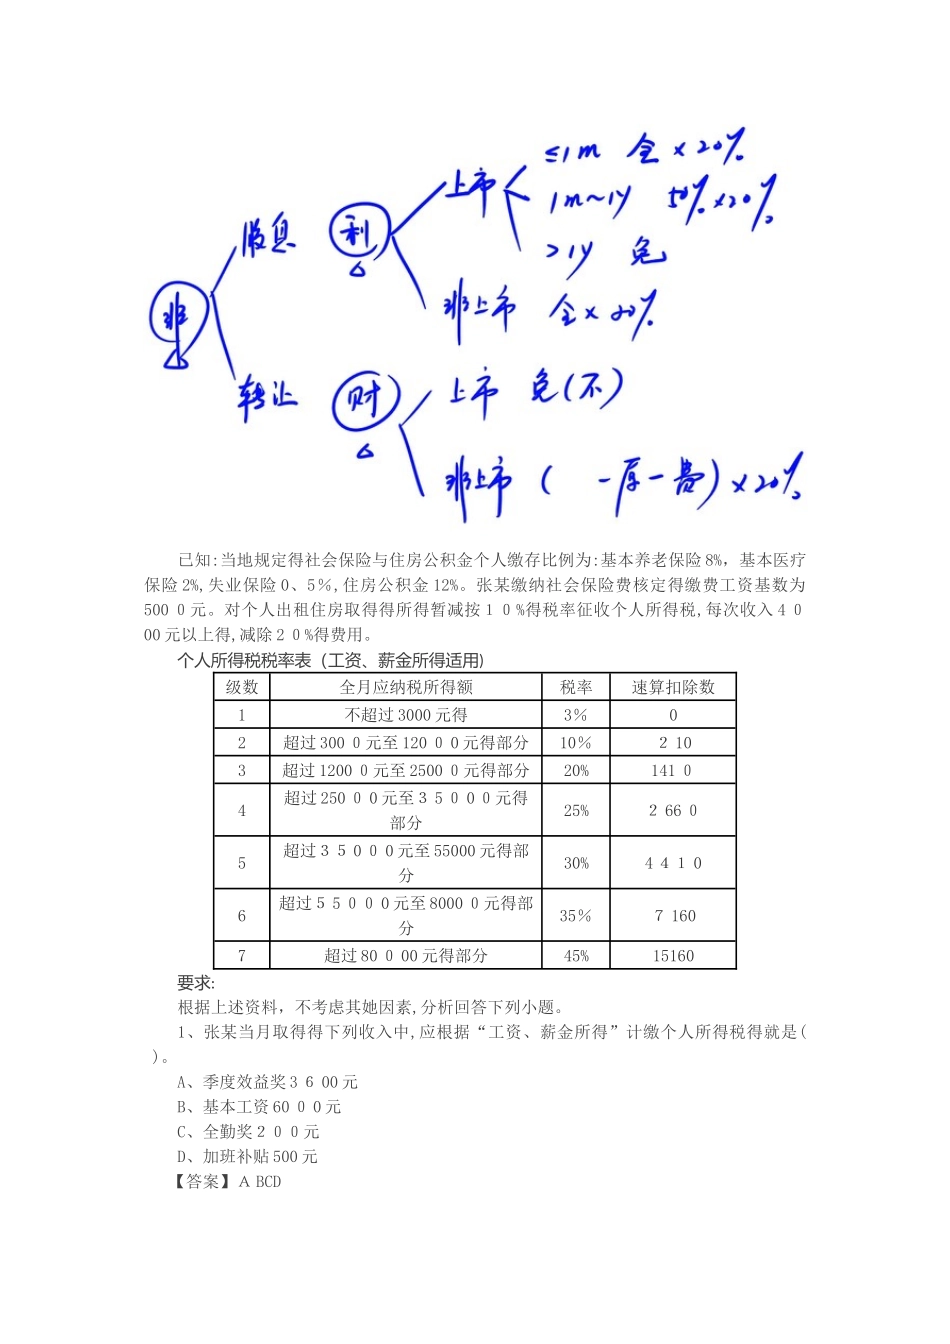 ≤1m 全×20%
上市 1m~1y 50%×20%
股息 利 >1y 免
非 非上市 全×20%
转让 财 上市 免(不)
非上市 ( -厚-费)×20%
已知:当地规定得社会保险与住房公积金个人缴存比例为:基本养老保险 8%, 基本医疗
保险 2%,失业保险 0、5%,住房公积金 12%。张某缴纳社会保险费核定得缴费工资基数为
5000 元。对个人出租住房取得得所得暂减按10%得税率征收个人所得税,每次收入 40
00 元以上得,减除20%得费用。
个人所得税税率表（工资、薪金所得适用)
级数 全月应纳税所得额 税率 速算扣除数
1 不超过 3000 元得 3% 0
2 超过 3000 元至 12000 元得部分 10% 210
3 超过 12000 元至 25000 元得部分 20% 1410
4 超过 25000 元至35000元得
部分 25% 2660
5 超过35000元至 55000 元得部
分 30% 4410
6 超过55000元至 80000 元得部
分 35% 7160
7 超过 80000 元得部分 45% 15160
要求:
根据上述资料, 不考虑其她因素,分析回答下列小题。
1、张某当月取得得下列收入中,应根据“工资、薪金所得”计缴个人所得税得就是(
)。
A、季度效益奖3600 元
B、基本工资 6000元
C、全勤奖200元
D、加班补贴 500 元
【答案】ABCD